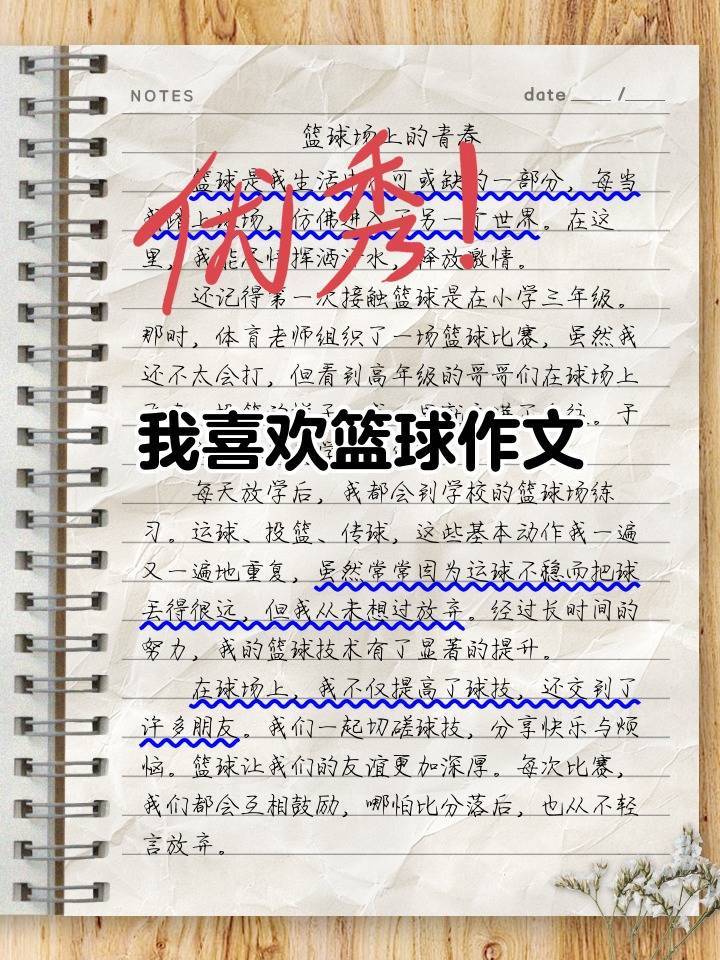 NOTES date ____ /____
篮球场上的青春
优秀！
篮球是我生活中不可或缺的一部分，每当
踏上球场，仿佛进入了另一个世界。在这
里，我能尽情挥洒汗水，释放激情。
还记得第一次接触篮球是在小学三年级。
那时，体育老师组织了一场篮球比赛，虽然我
还不太会打，但看到高年级的哥哥们在球场上
于
我喜欢篮球作文
每天放学后，我都会到学校的篮球场练
习。运球、投篮、传球，这些基本动作我一遍
又一遍地重复，虽然常常因为运球不稳而把球
丢得很远，但我从未想过放弃。经过长时间的
努力，我的篮球技术有了显著的提升。
在球场上，我不仅提高了球技，还交到了
许多朋友。我们一起切磋球技，分享快乐与烦
恼。篮球让我们的友谊更加深厚。每次比赛，
我们都会互相鼓励，哪怕比分落后，也从不轻
言放弃。